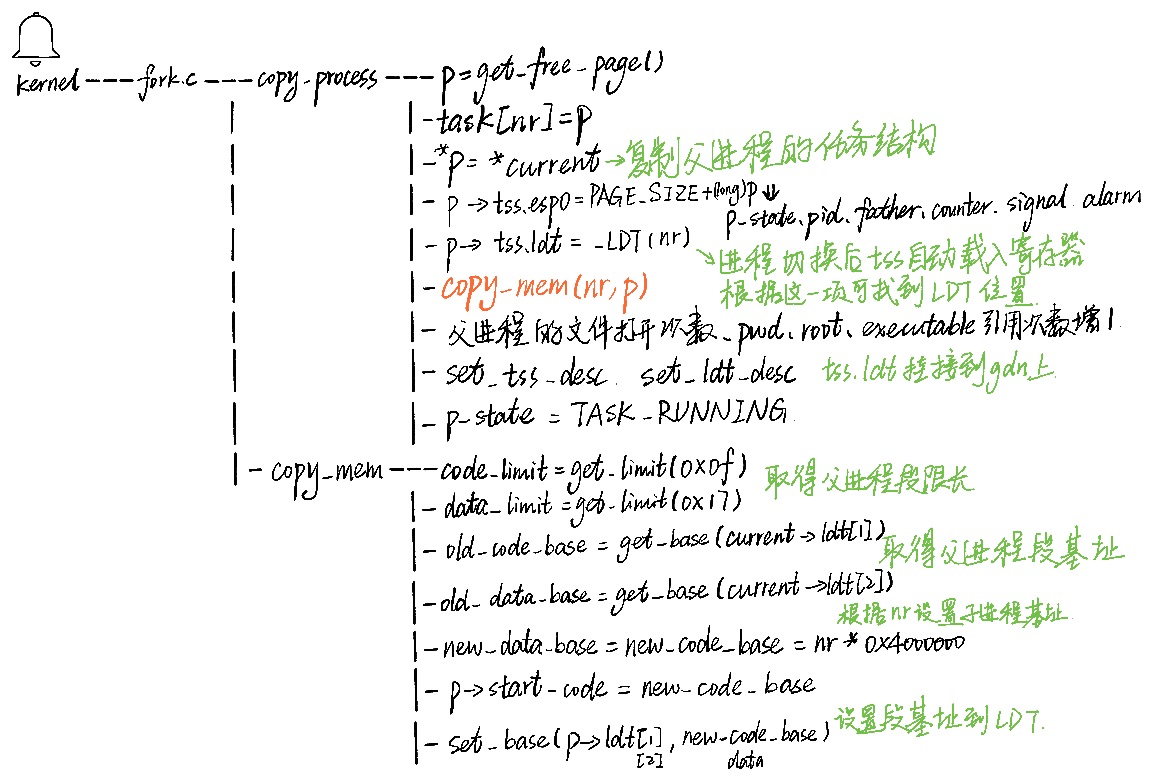 kernel --- fork.c --- copy_process --- p=get_free_page()
-task[nr]=p
-*p= *current →复制父进程的任务结构
- p→tss.esp0=PAGE_SIZE+(long)p ↓
p_state、pid、father、counter、signal、alarm
- p→ tss.ldt = _LDT(nr)
↘进程切换后tss自动载入寄存器
根据这一项可找到LDT位置
- copy_mem(nr,p)
- 父进程的文件打开次数、pwd、root、executable引用次数增1
- set_tss_desc、set_ldt_desc tss.ldt挂接到gdt上
- p_state = TASK_RUNNING
- copy_mem --- code_limit=get_limit(0x0f)
取得父进程段限长
- data_limit=get_limit(0x17)
- old_code_base = get_base(current→ldt[1])
取得父进程段基址
-old_data_base=get_base(current→ldt[2])
根据nr设置子进程基址
-new_data_base=new_code_base=nr*0x4000000
- p→start_code = new_code_base
设置段基址到LDT.
- set_base(p→ldt[1], new_code_base)
[2] data